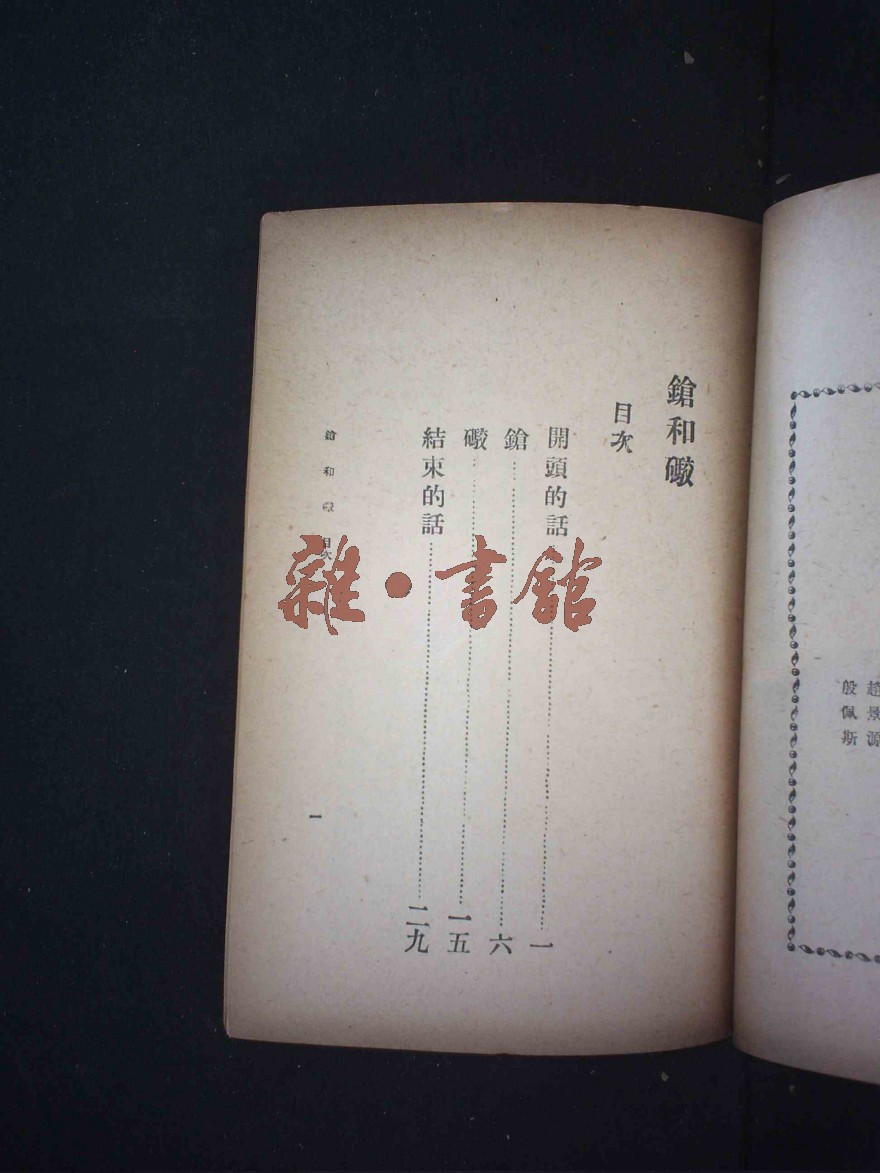 趙景源
殷佩斯
鎗和礮
目次
開頭的話……一
鎗……六
礮……一五
結束的話……二九
鎗和礮 目次
一
雜·書館